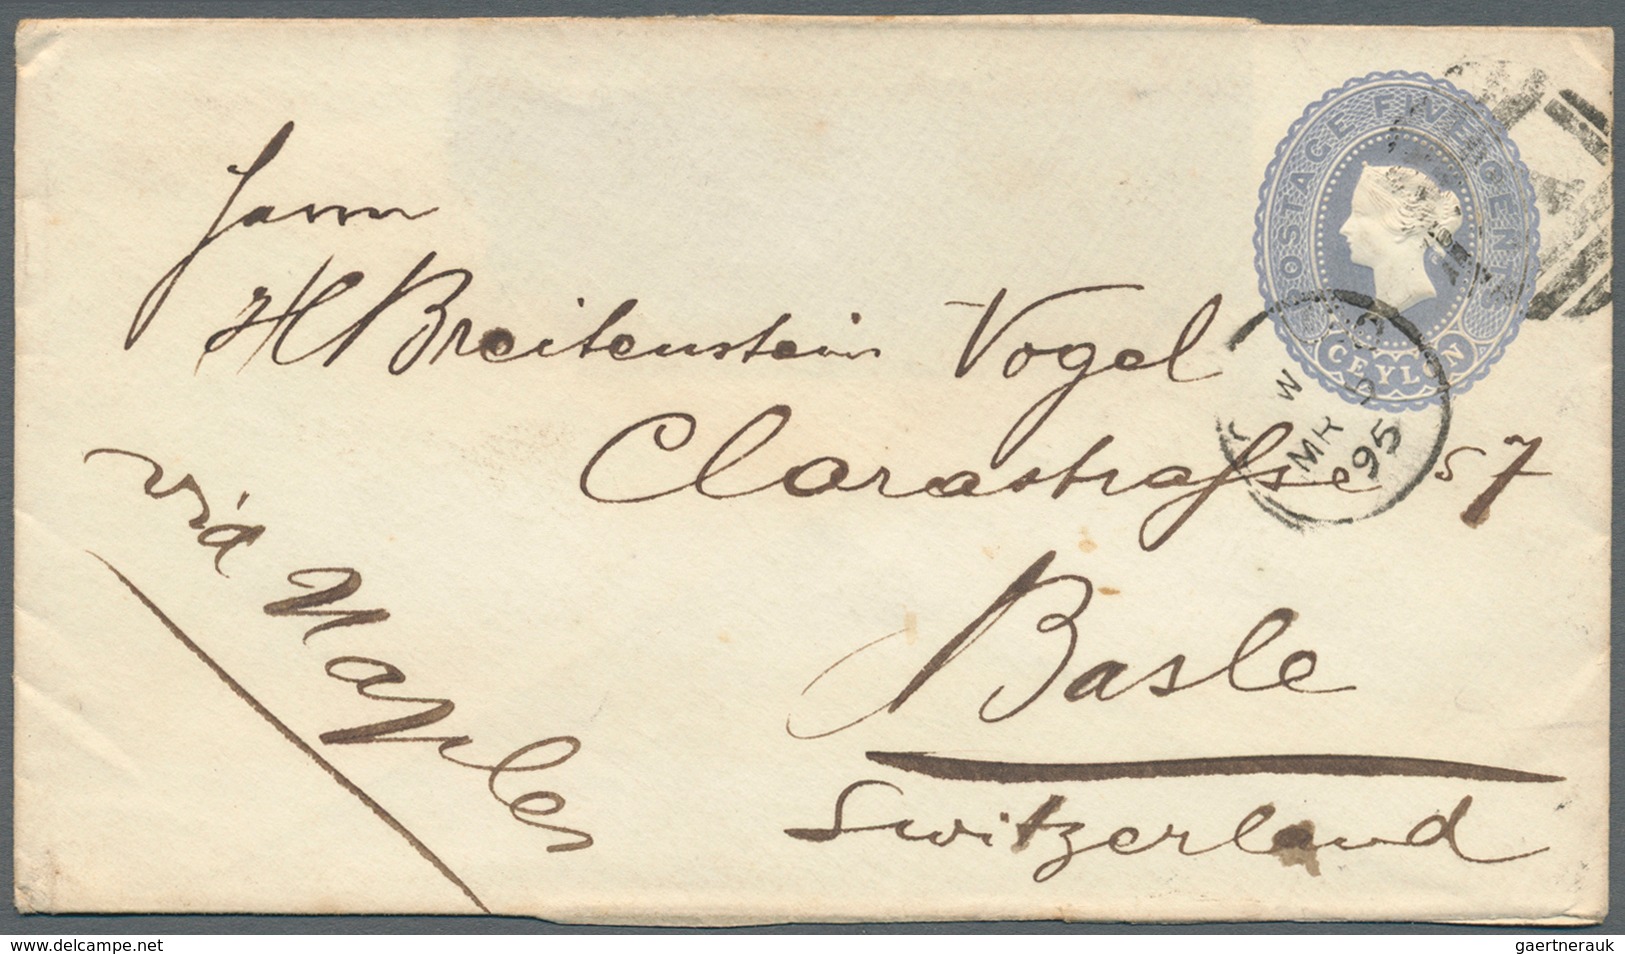 POSTAGE FIVE CENTS
CEYLON
W
MR 9
95
H Breitenstein Vogel
Clarastraſse 57
Basle
Switzerland
via Naples
delcampe.net
gaertnerauk